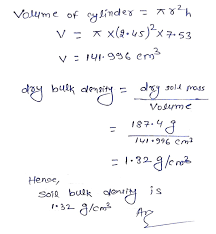 Volume of cylinder = πr²h
V = π×(2.45)²×7.53
V = 141.996 cm³
dry bulk density = dry soil mass / Volume
= 187.4 g / 141.996 cm³
= 1.32 g/cm³
Hence,
soil bulk density is
1.32 g/cm³